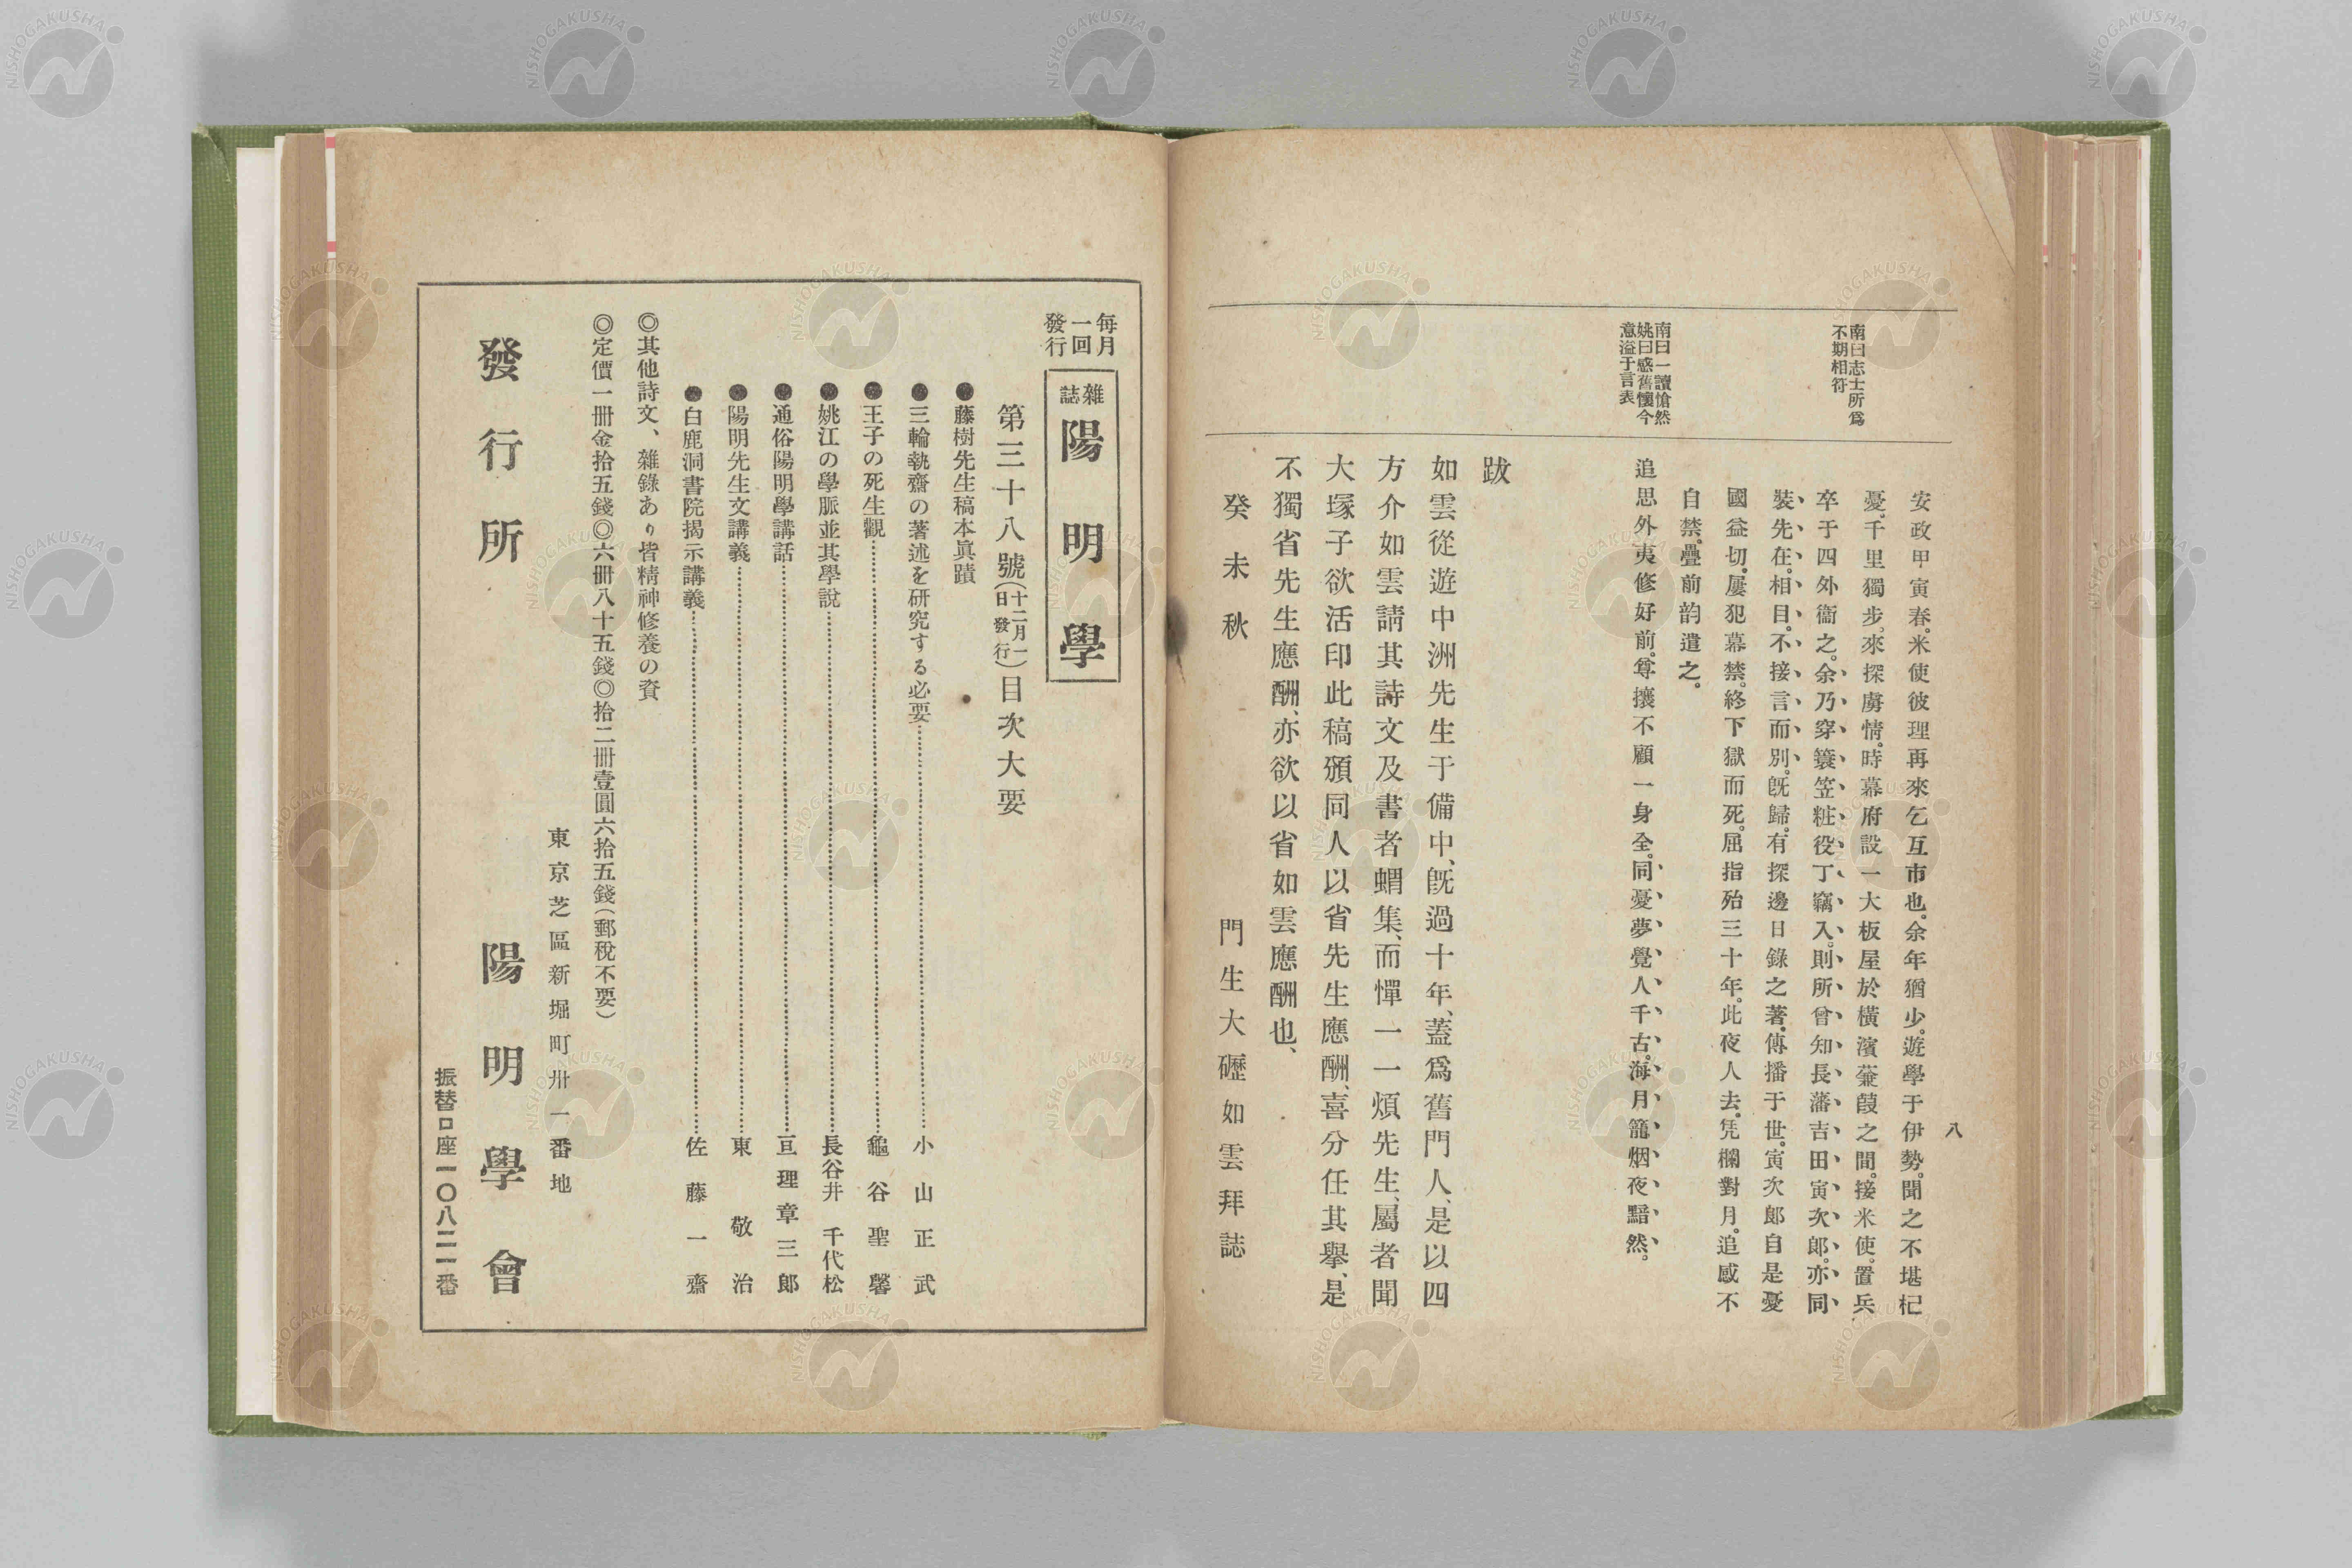 八
南曰志士所爲
不期相符
南曰一讀愴然
姚曰感舊懷今
意溢于言表
安政甲寅春。米使彼理再來乞互市也。余年猶少。遊學于伊勢。聞之不堪杞
憂。千里獨步。來探虜情。時幕府設一大板屋於橫濱蒹葭之間。接米使。置兵
卒于四外衞之。余乃穿簑笠粧役丁竊入。則所曾知長藩吉田寅次郎。亦同
裝先在。相目。不接言而別。旣歸。有探邊日錄之著。傳播于世。寅次郎自是憂
國益切。屢犯幕禁。終下獄而死。屈指殆三十年。此夜人去。凭欄對月。追感不
自禁。疊前韵遣之。
追思外夷修好前。尊攘不顧一身全。同憂夢覺人千古。海月籠烟夜黯然。
跋
如雲從遊中洲先生于備中、旣過十年、蓋爲舊門人、是以四
方介如雲請其詩文及書者蝟集、而憚一一煩先生、屬者聞
大塚子欲活印此稿頒同人以省先生應酬、喜分任其擧、是
不獨省先生應酬、亦欲以省如雲應酬也、
癸未秋
門生大礰如雲拜誌
每月
一回
發行
雜誌 陽明學
第三十八號(十二月一日發行)目次大要
●藤樹先生稿本眞蹟
●三輪執齋の著述を研究する必要……小山正武
●王子の死生觀……龜谷聖馨
●姚江の學脈並其學說……長谷井千代松
●通俗陽明學講話……亘理章三郎
●陽明先生文講義……東敬治
●白鹿洞書院揭示講義……佐藤一齋
◎其他詩文、雜錄あり皆精神修養の資
◎定價一册金拾五錢◎六册八十五錢◎拾二册壹圓六拾五錢(郵稅不要)
東京芝區新堀町卅一番地
發行所 陽明學會
振替口座一〇八二一番
NISHOGAKUSHA